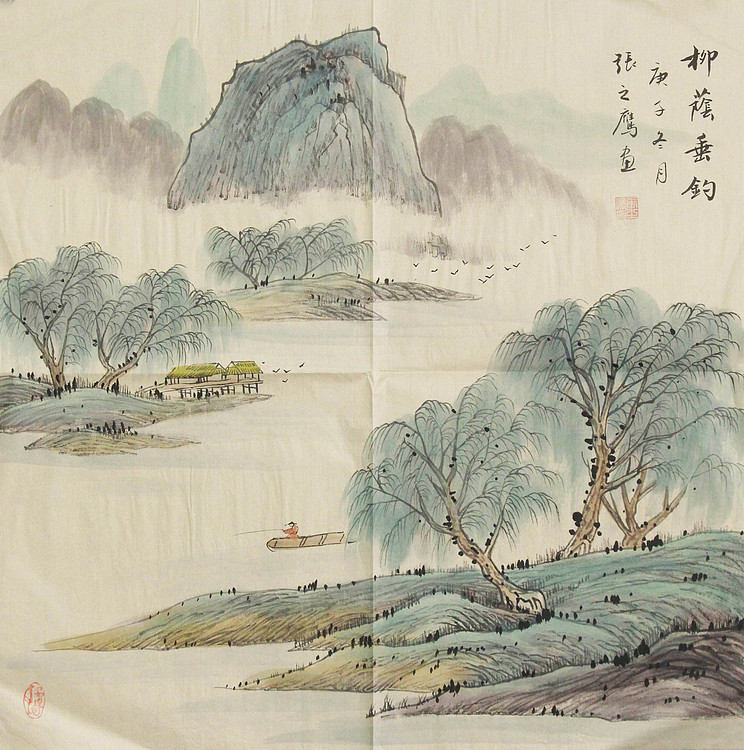 柳蔭垂釣
庚子冬月
張之鷹畫